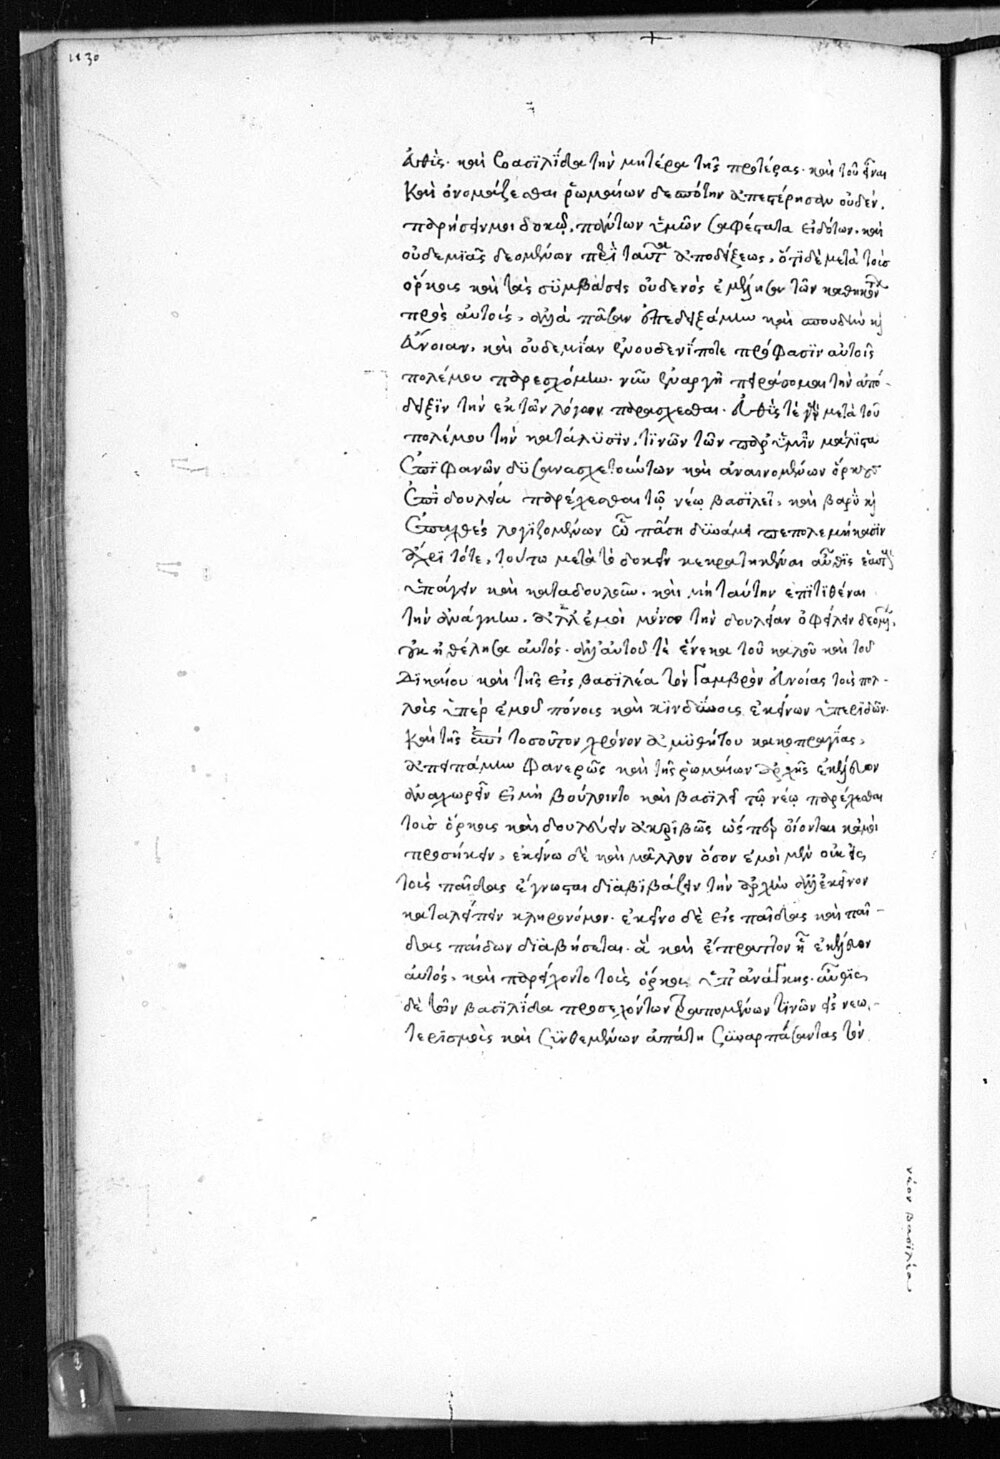 1830
αὖθις. καὶ βασιλίδα τὴν μητέρα τῆς προτέρας. καὶ τοῦ εἶναι
καὶ ὀνομάζεσθαι ῥωμαίων δεσπότην ἀπεστέρησαν οὐδέν.
παρήσειν μοι δοκῶ, πάντων ὑμῶν σαφέστατα εἰδότων. καὶ
οὐδεμιᾶς δεομένων περὶ ταῦτα ἀποδείξεως, ὅτι δὲ μετὰ τοὺσ
ὅρκους καὶ τὰς συμβάσεις οὐδενὸς ἐμέλησα τῶν καθηκόντων
πρὸς αὐτούς, ἀλλὰ πᾶσαν ἐπεδειξάμην καὶ σπουδὴν κ
εὔνοιαν, καὶ οὐδεμίαν ἐν οὐδενίποτε πρόφασιν αὐτοῖς
πολέμου παρεσχόμην. νῦν ἐναργῆ πειράσομαι τὴν ἀπό-
δειξιν τὴν ἐκ τῶν λόγων παρασχέσθαι. εὐθύς τε γὰρ μετὰ τοῦ
πολέμου τὴν κατάλυσιν, τινῶν τῶν παρ' ὑμῖν μάλιστα
ἐπιφανῶν δυσανασχετούντων καὶ ἀναινομένων ὅρκους
ἐπὶ δουλεία παρέχεσθαι τῶ νέω βασιλεῖ, καὶ βαρὺ κ
ἐπαχθὲς λογιζομένων ὧ πάση δυνάμει πεπολεμήκασιν
ἄχρι τότε, τούτω μετὰ τὸ δοκεῖν κεκρατηκέναι αὖθις ἑαυτοὺς
ὑπάγειν καὶ καταδουλοῦν. καὶ μὴ ταύτην ἐπιτιθέναι
τὴν ἀνάγκην. ἀλλ' ἐμοὶ μόνον τὴν δουλείαν ὀφείλειν δεομένων,
οὐκ ἠθέλησα αὐτός. ἀλλ' αὐτοῦ τὲ ἕνεκα τοῦ καλοῦ καὶ τοῦ
δικαίου καὶ τῆς εἰς βασιλέα τὸν γαμβρὸν εὐνοίας τοὺς πολ-
λοὺς ὑπὲρ ἐμοῦ πόνους καὶ κινδύνους ἐκείνων ὑπεριδών.
καὶ τῆς ἐπὶ τοσοῦτον χρόνον ἀμυθήτου κακοπραγίας,
ἀπειπάμην φανερῶς καὶ τῆς ῥωμαίων ἀρχῆς ἐκέλευον
ἀναχωρεῖν εἰ μὴ βούλοιντο καὶ βασιλεῖ τῶ νέω παρέχεσθαι
τοὺσ ὅρκους καὶ δουλεύειν ἀκριβῶς ὥσπερ οἴονται κἀμοὶ
προσήκειν, ἐκείνω δὲ καὶ μᾶλλον ὅσον ἐμοὶ μὲν οὐκ εἰς
τοὺς παῖδας ἔγνωσται διαβιβάζειν τὴν ἀρχὴν ἀλλ' ἐκεῖνον
καταλείπειν κληρονόμον. ἐκείνω δὲ εἰς παῖδας καὶ παῖ-
δας παίδων διαβήσεται. ἃ καὶ ἔπραττον ᾗ ἐκέλευον
αὐτός, καὶ παρείχοντο τοὺς ὅρκους ὑπ' ἀνάγκης. αὖθις
δὲ τῶν βασιλίδα προσεχόντων τραπομένων τινῶν εἰς νεω-
τερισμοὺς καὶ συνθεμένων ἀπάτη συναρπάσαντας τὸν
νέον βασιλέα